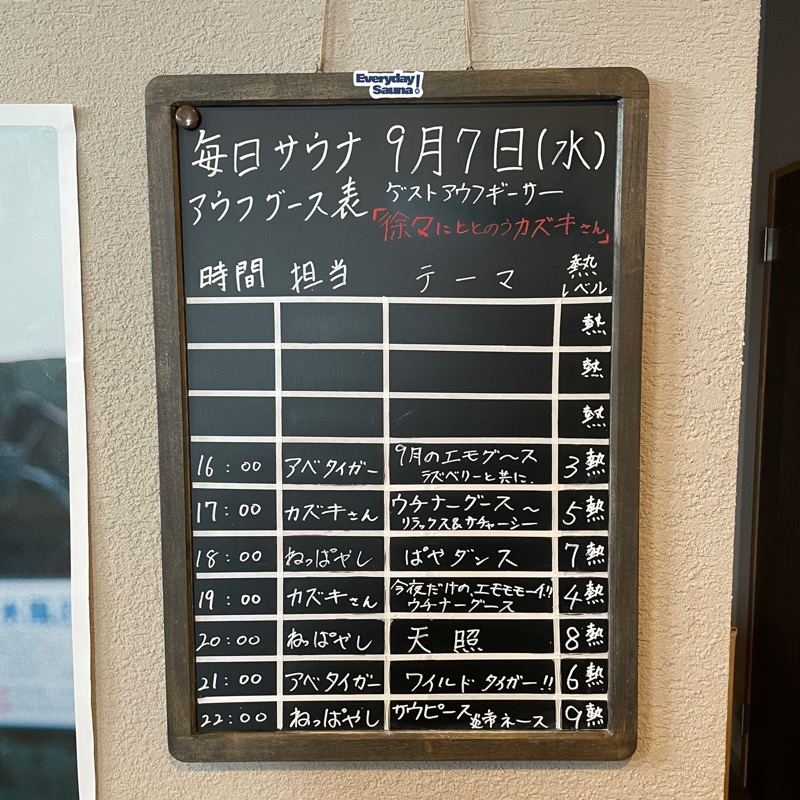 Everyday
Sauna!
毎日サウナ 9月7日(水)
アウフグース表 ゲストアウフギーサー
「徐々にととのうカズキさん」
時間 担当 テーマ 熱レベル
熱
熱
熱
16:00 アベタイガー 9月のエモグ〜ス 3熱
ラズベリーと共に.
17:00 カズキさん ウチナーグース〜 5熱
リラックス&カチャーシー
18:00 ねっぱやし ぱやダンス 7熱
19:00 カズキさん 今夜だけの、エモモモーイ!! 4熱
ウチナーグース
20:00 ねっぱやし 天照 8熱
21:00 アベタイガー ワイルドタイガー!! 6熱
22:00 ねっぱやし サウピース 炎帝ネース 9熱